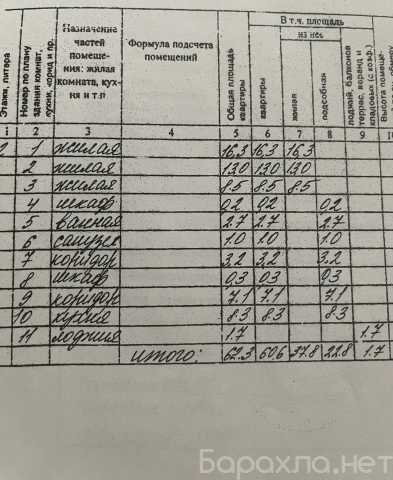 Этажи, литера
Номер по плану
здания комнат,
кухни, корид и пр.
Назначение
частей
помеще-
ния: жилая
комната, кух-
ня и т.п
Формула подсчета
помещений
Общая площадь
квартиры
В т.ч. площадь
из нее
квартиры
жилая
подсобная
лоджий, балконов
террас, веранд и
кладовых (с коэф.)
Высота помеще-
1 2 3 4 5 6 7 8 9 10
1 жилая 16,3 16,3 16,3
2 жилая 13.0 13.0 13.0
3 жилая 8.5 8.5 8.5
4 шкаф 0.2 0.2 0.2
5 ванная 2.7 2.7 2.7
6 санузел 1.0 1.0 1.0
7 коридор 3.2 3.2 3.2
8 шкаф 0,3 0.3 0.3
9 коридор 7.1 7.1 7.1
10 кухня 8.3 8.3 8.3
11 лоджия 1.7 1.7
итого: 62.3 60,6 37.8 22.8 1.7
Барахла.нет